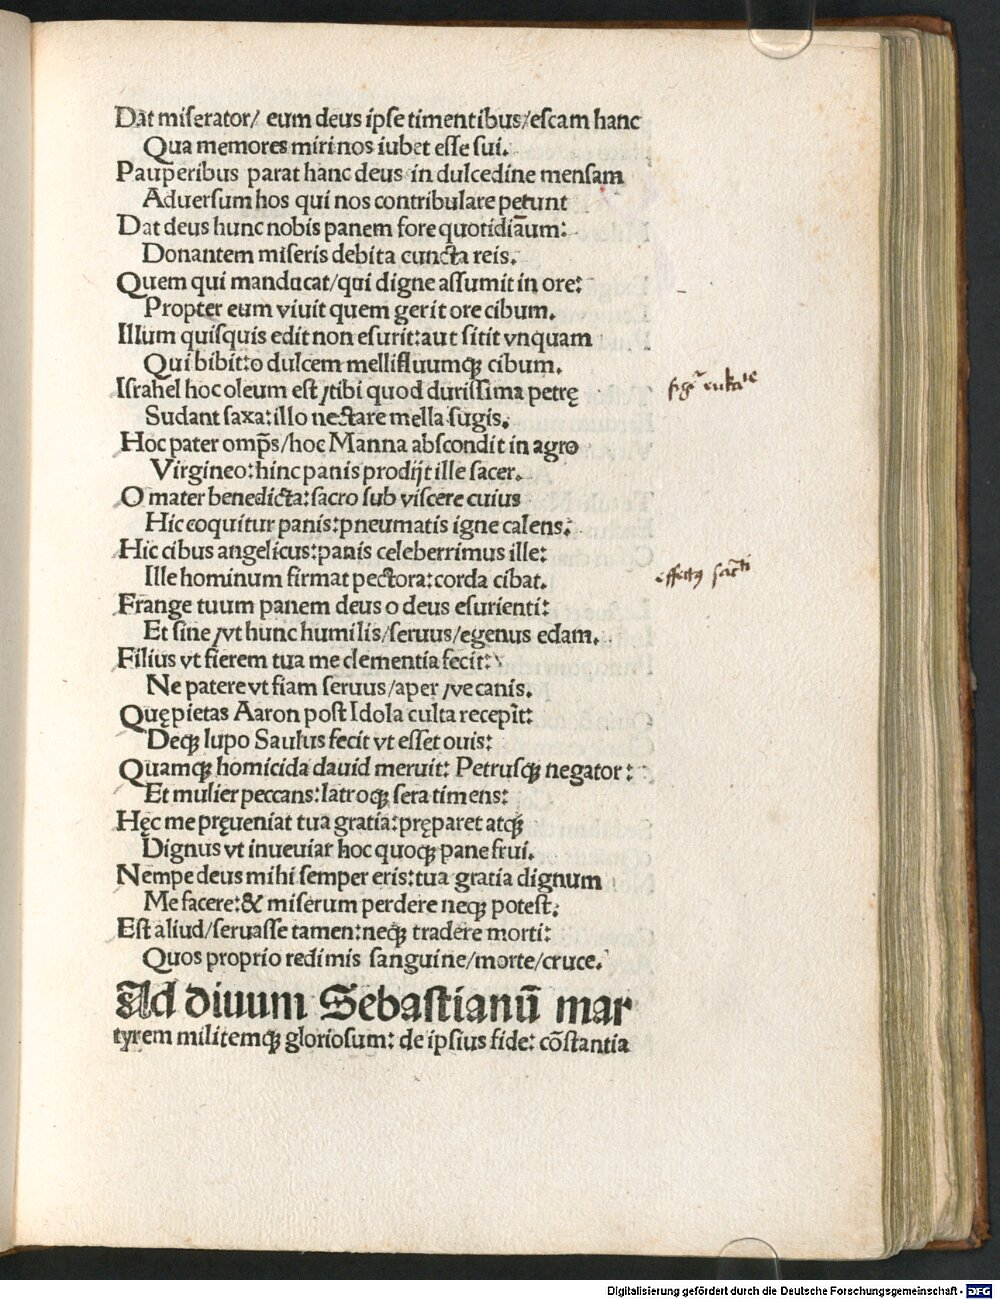 Dat miserator/ eum deus ipse timentibus/escam hanc
Qua memores miri nos iubet esse sui.
Pauperibus parat hanc deus in dulcedine mensam
Aduersum hos qui nos contribulare petunt
Dat deus hunc nobis panem fore quotidiāum:
Donantem miseris debita cuncta reis.
Quem qui manducat/qui digne assumit in ore:
Propter eum viuit quem gerit ore cibum.
Illum quisquis edit non esurit: aut sitit vnquam
Qui bibit: o dulcem mellifluumqꝫ cibum.
Israhel hoc oleum est /tibi quod durissima petrę
Sudant saxa: illo nectare mella sugis.
Hoc pater omp̄s/hoc Manna abscondit in agro
Virgineo: hinc panis prodijt ille sacer.
O mater benedicta: sacro sub viscere cuius
Hic coquitur panis: pneumatis igne calens.
Hic cibus angelicus: panis celeberrimus ille:
Ille hominum firmat pectora: corda cibat.
Frange tuum panem deus o deus esurienti:
Et sine /vt hunc humilis/seruus/egenus edam.
Filius vt fierem tua me clementia fecit:
Ne patere vt fiam seruus/aper /ve canis.
Quę pietas Aaron post Idola culta recepit:
Deqꝫ lupo Saulus fecit vt esset ouis:
Quamqꝫ homicida dauid meruit: Petrusqꝫ negator:
Et mulier peccans: latroqꝫ sera timens:
Hęc me pręueniat tua gratia: pręparet atqꝫ
Dignus vt inueuiar hoc quoqꝫ pane frui.
Nempe deus mihi semper eris: tua gratia dignum
Me facere: & miserum perdere neqꝫ potest:
Est aliud/seruasse tamen: neqꝫ tradere morti:
Quos proprio redimis sanguine/morte/cruce.
Ad diuum Sebastianū mar
tyrem militemqꝫ gloriosum: de ipsius fide: cōstantia
effectꝰ
Digitalisierung gefördert durch die Deutsche Forschungsgemeinschaft - DFG